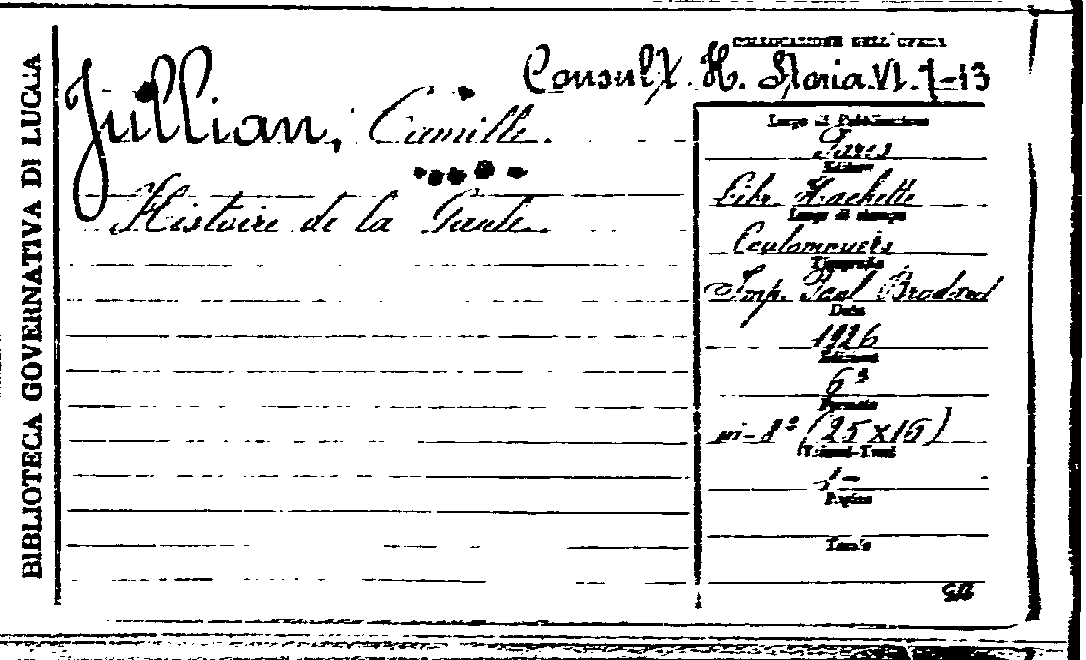 BIBLIOTECA GOVERNATIVA DI LUCCA
COLLOCAZIONE DELL'OPERA
Consult. H. Storia. VI. 7-13
Jullian, Camille.
Histoire de la Gaule.
Luogo di Pubblicazione
Paris
Editore
Libr. Hachette
Luogo di stampa
Coulommiers
Tipografia
Imp. Paul Brodard
Data
1926
Edizione
6ª
Formato
in-8° (25x16)
Volumi-Tomi
Pagine
Tavole